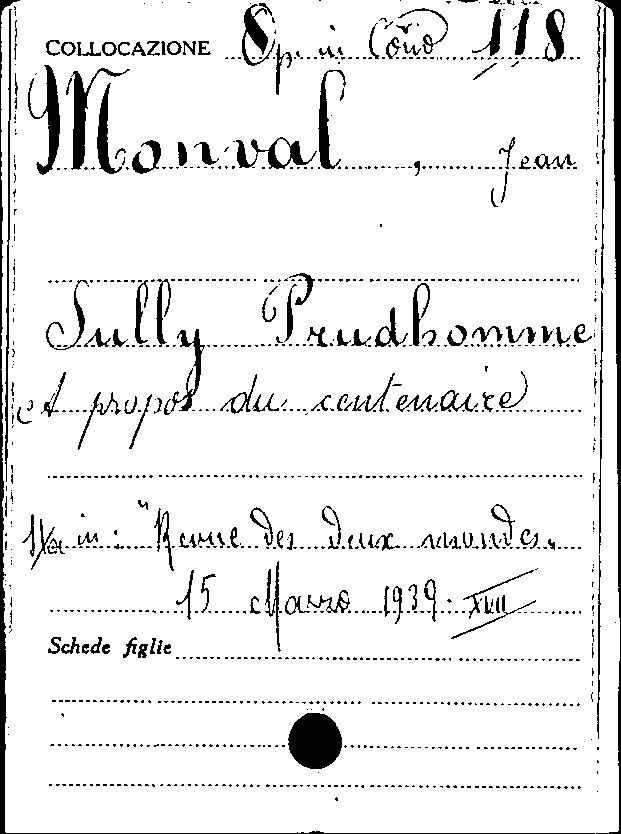 COLLOCAZIONE Op. in Cons 118
Monval, Jean
Sully Prudhomme
A propos du centenaire
in: "Revue des deux mondes.
15 Marzo 1939. XVII
Schede figlie